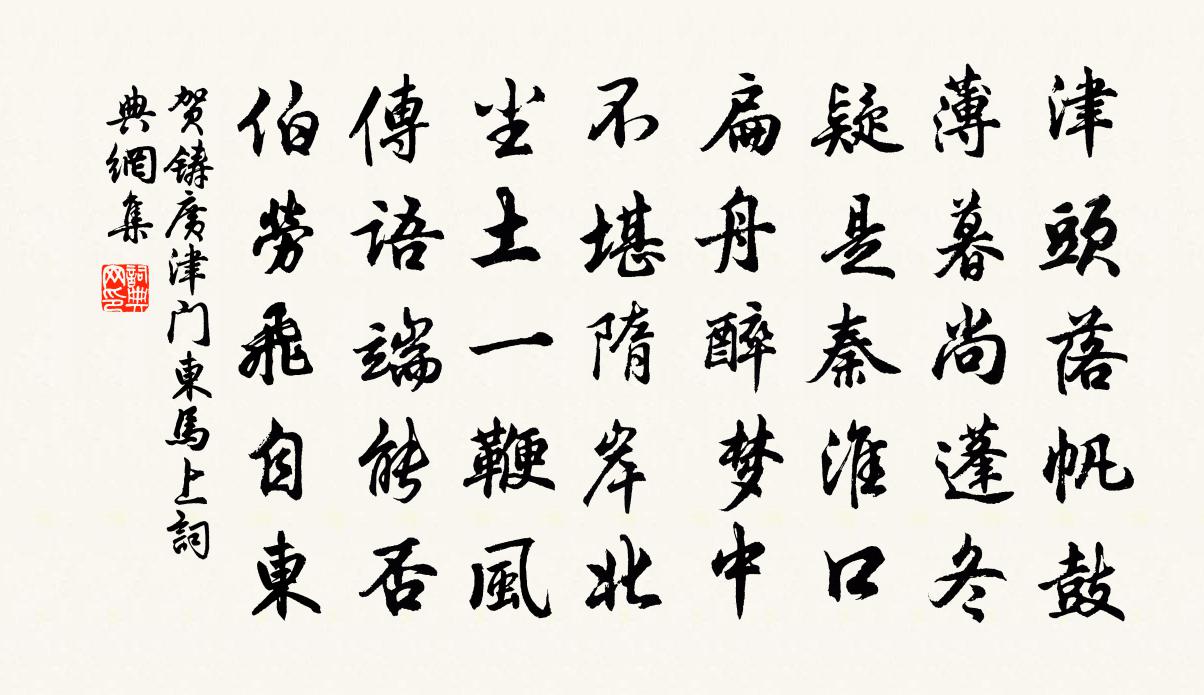 津頭落帆鼓
薄暮尚蓬冬
疑是秦淮口
扁舟醉梦中
不堪隋岸北
尘土一鞭風
傳語端能否
伯勞飛自東
贺鑄廣津門東馬上詞
典網集
詞典
网印